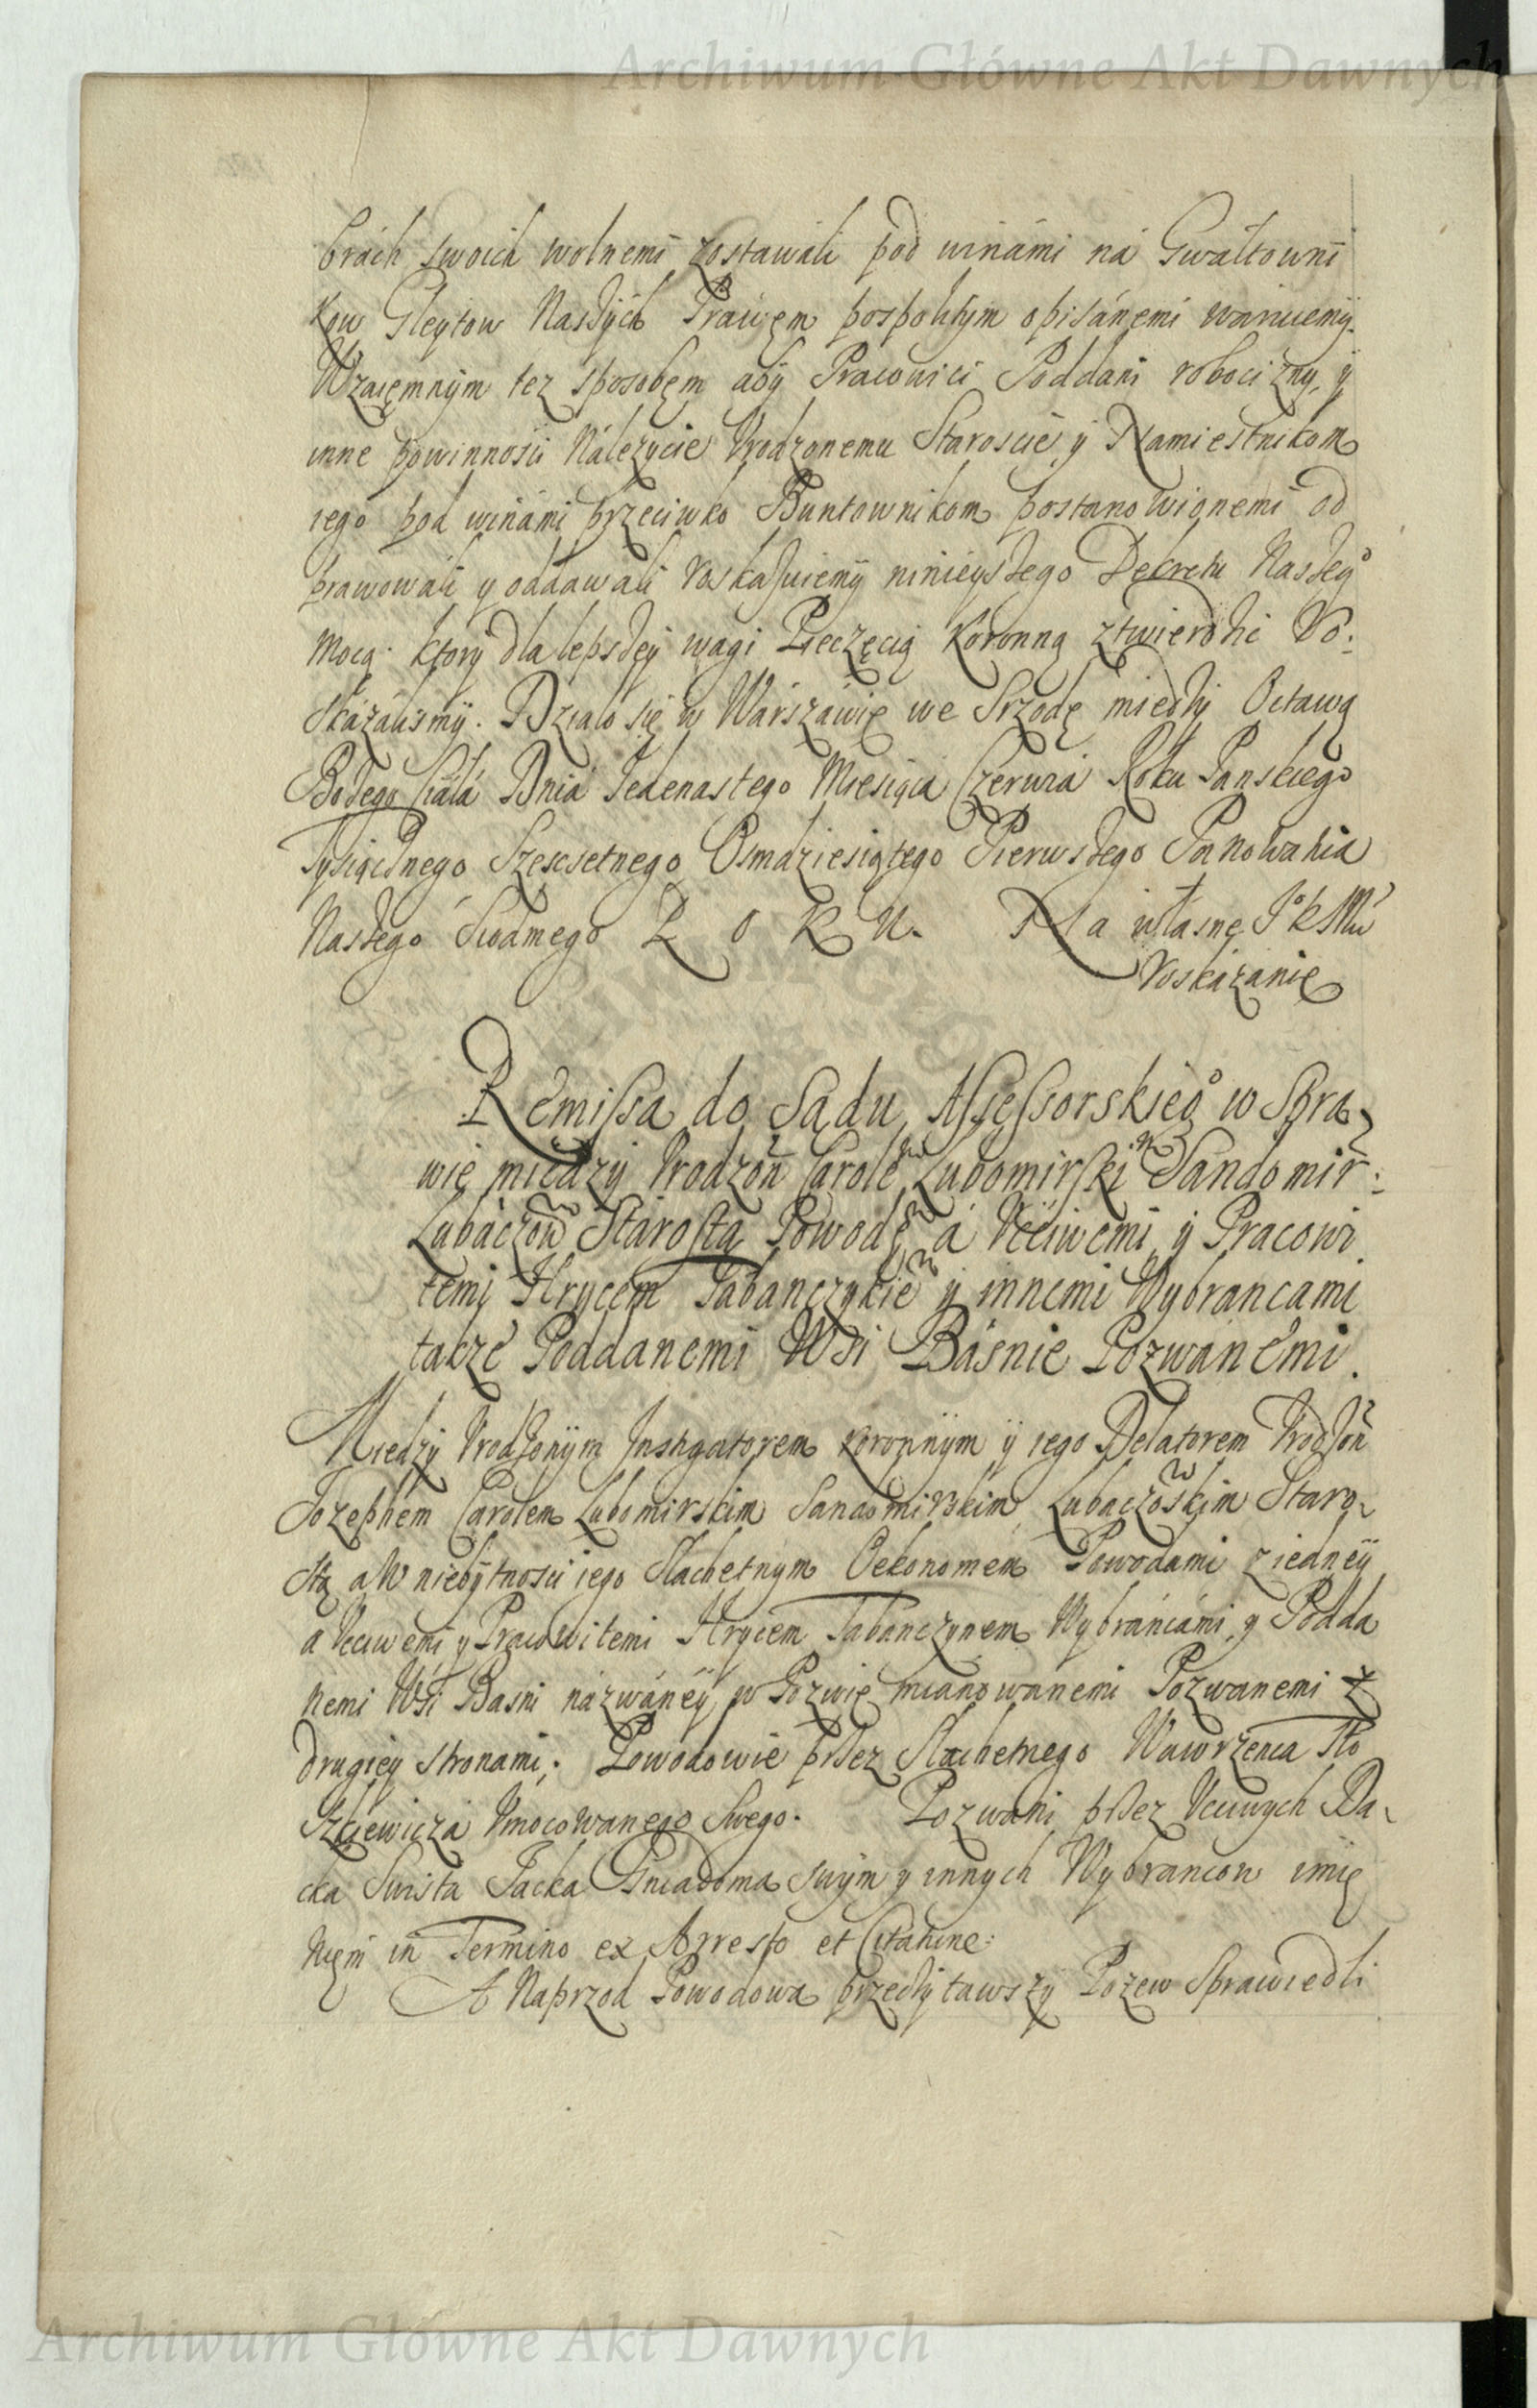 Archiwum Główne Akt Dawnych
brách swoich wolnemi zostawali pod winámi ná Gwáłtowni
kow Gleytow Naszych Práwęm pospolitym opisánęmi wáruiemy.
Wzaięmnym tez sposobęm aby Pracowici Poddani robocizny, y
inne powinnosci Nálezycie Vrodzonemu Staroscie, y Namiestnikom
iego pod winámi przeciwko Buntownikom postanowionemi od
prawowali y oddawali roskazuiemy ninieyszego Dekretu Naszego
mocą. ktory dla lepszey wagi Pieczęcią Koronną ztwierdzic Ro:
skázálismy. Działo się w Wárszáwię we Srzodę między Octawą
Bożego Ciałá Dniá Jedenastego Miesiącá Czerwcá Roku Panskiego
Tysiącznego Szescsetnego Osmdziesiątego Pierwszego Panowania
Naszego Siodmego R O K U. Na własnę JºKMci
Roskazanię
Remissa do Sądu Assessorskiegº w Spra
wie między Vrodzoń Carolē Lubomirski Sandomir:
Lubaczoẃ Starostą Powodē á Vćciwemi y Pracowi
temi Hrycem Tabanczykiē y innemi Wybrancami
takze Poddanemi Wsi Básnie Pozwánemi.
Miedzy Vrodzonym Instigatorem koronnym y iego Delatorem Vrodzoń
Jozephem Carolem Lubomirskim Sandomirskim Lubaczoskim Staro
stą a W niebytnosci iego Slachetnym Oekonomem Powodami z iedney
a Vcciwemi y Pracowitemi Hrycem Tabanczynem Wybráncámi, y Podda
nemi Wsi Basni názwáney w Pozwię mianowánemi Pozwanemi z
drugiey stronami; Powodowie przez Slachetnego Wawrzenca
Vmocowanego Swego. Pozwani przez Vcciwych Da
cka Swista Jacka Gniadoma swym y innych Wybrancow imię
nięm in Termino ex Arresto et Citatione.
A Naprzod Powodowa przeczytawszy Pozew Sprawiedli
Archiwum Główne Akt Dawnych